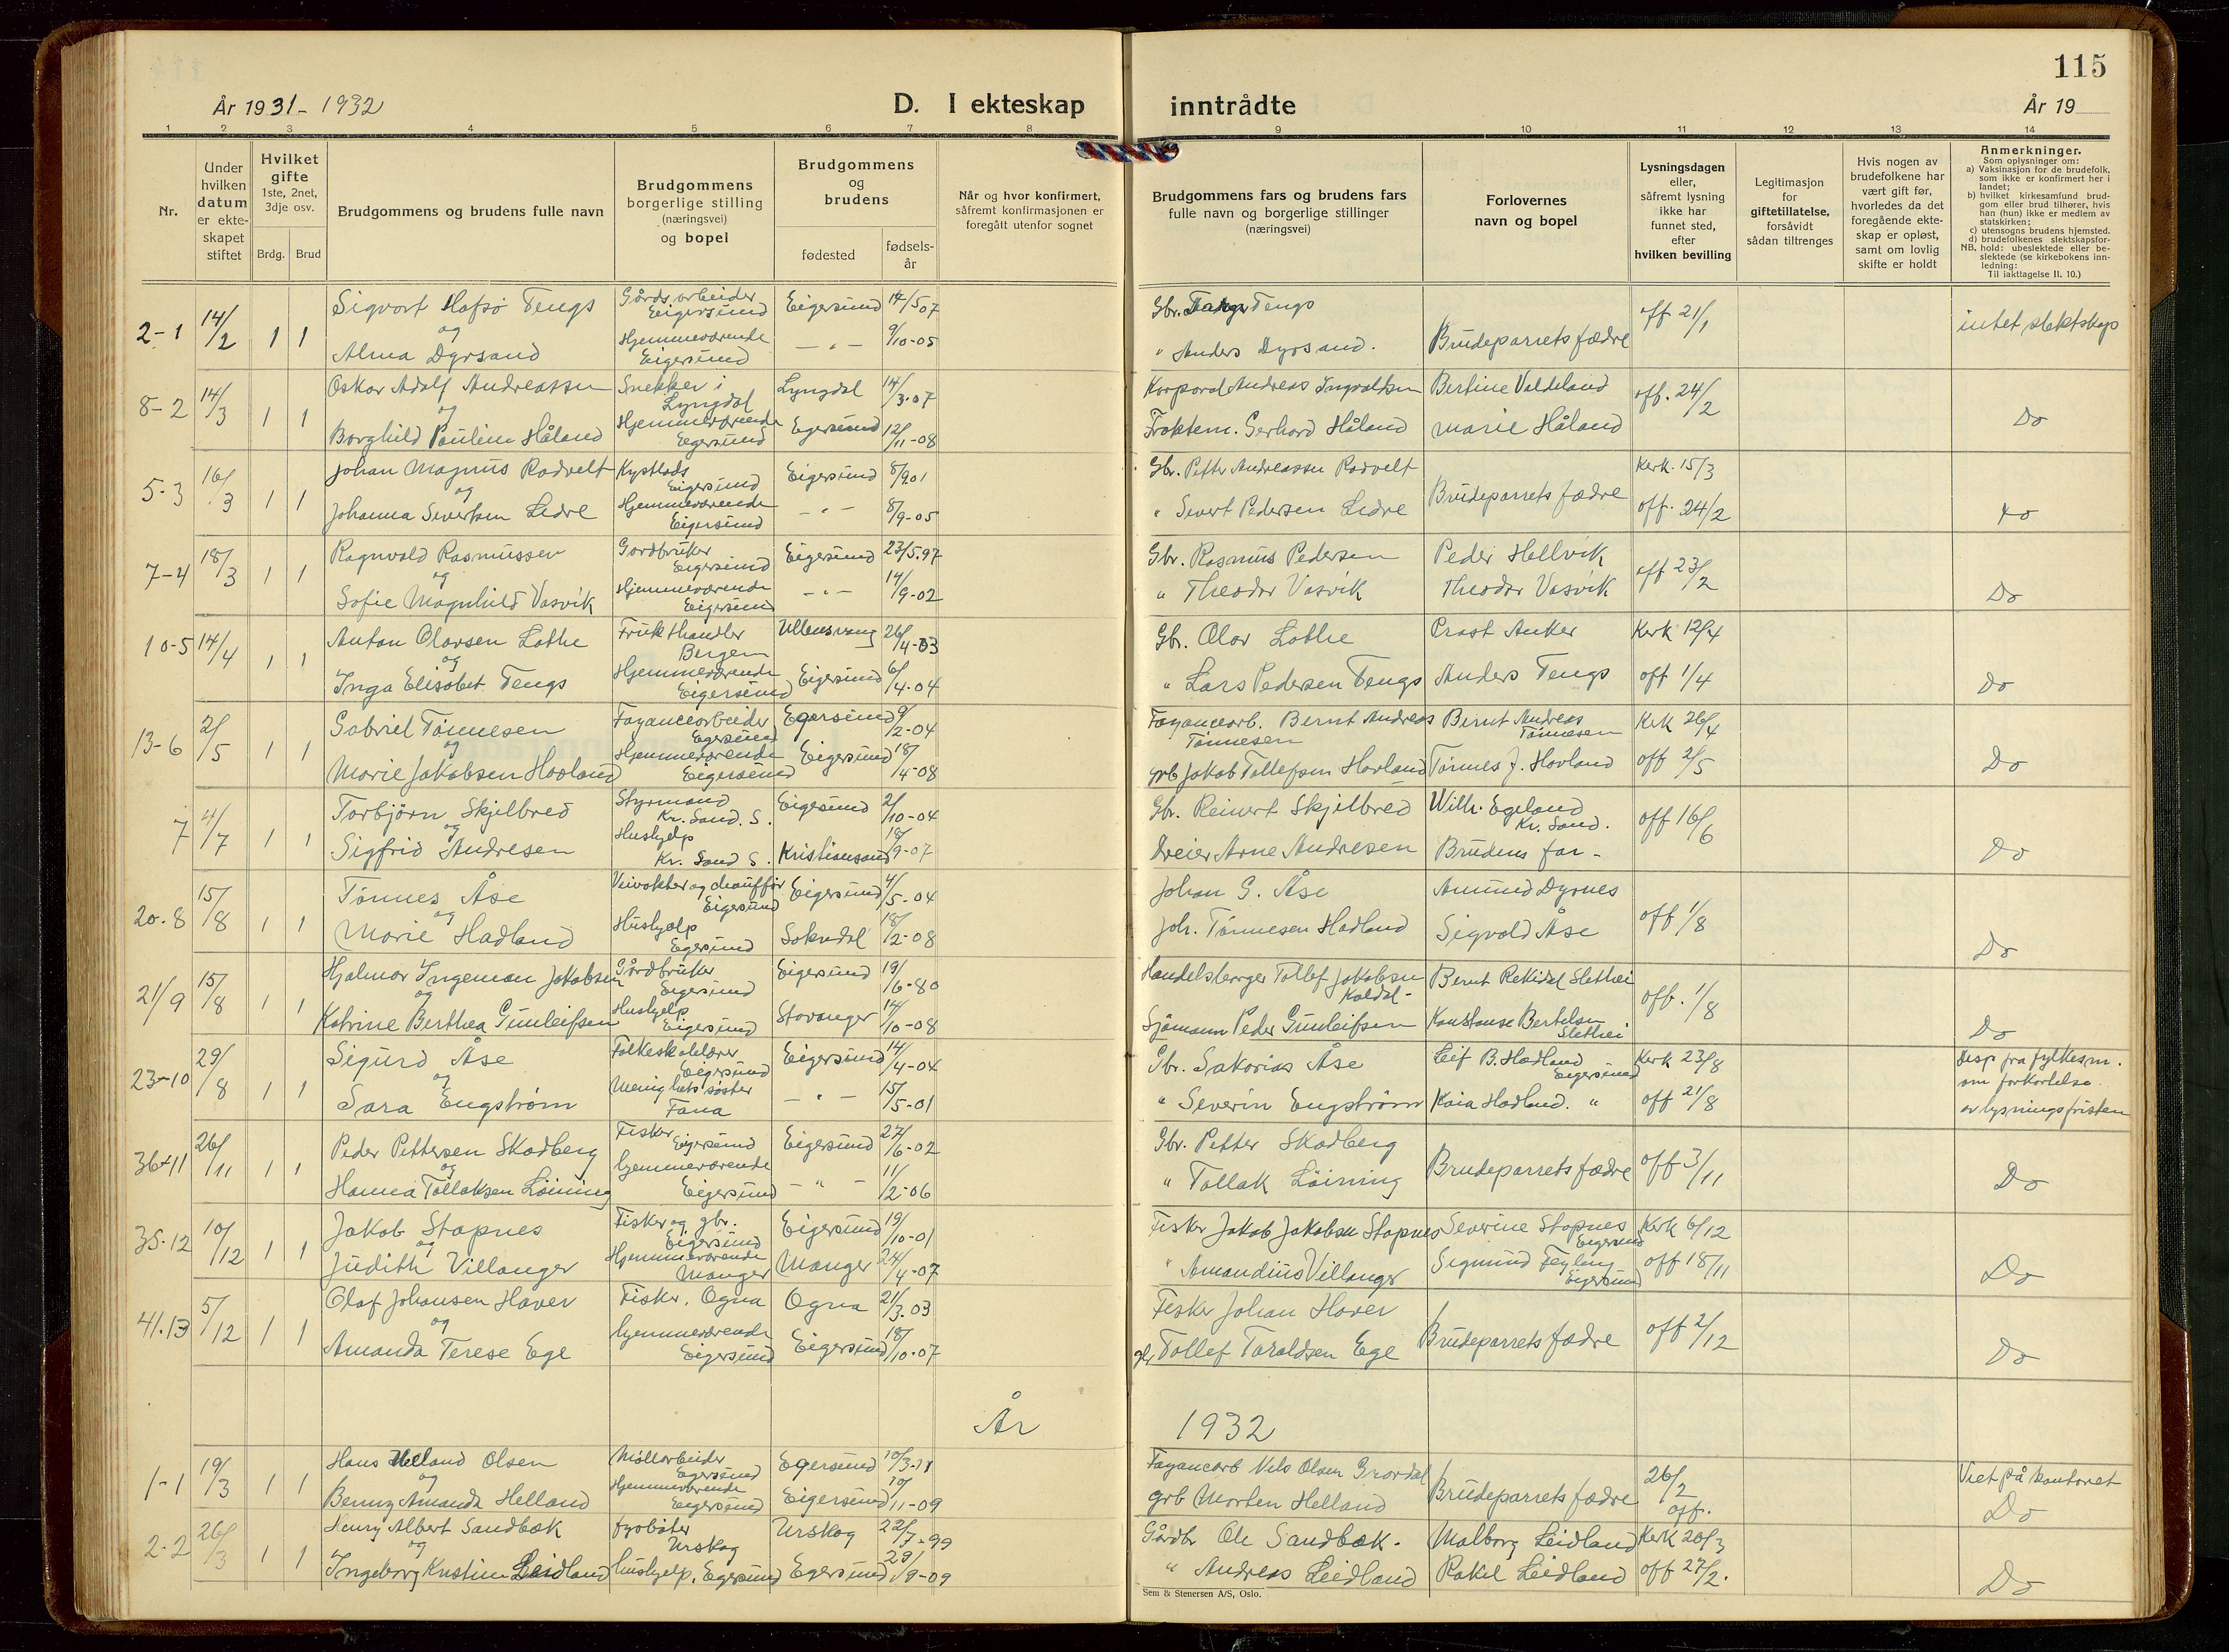 115
År 1931-1932
D. I ekteskap
inntrådte
År 19
1 2 3 4 5 6 7 8 9 10 11 12 13 14
Nr.
Under
hvilken
datum
er ekte-
skapet
stiftet
Hvilket
gifte
1ste, 2net,
3dje osv.
Brdg. Brud
Brudgommens og brudens fulle navn
Brudgommens
borgerlige stilling
(næringsvei)
og bopel
Brudgommens
og
brudens
fødested
fødsels-
år
Når og hvor konfirmert,
såfremt konfirmasjonen er
foregått utenfor sognet
Brudgommens fars og brudens fars
fulle navn og borgerlige stillinger
(næringsvei)
Forlovernes
navn og bopel
Lysningsdagen
eller,
såfremt lysning
ikke har
funnet sted,
efter
hvilken bevilling
Legitimasjon
for
giftetillatelse,
forsåvidt
sådan tiltrenges
Hvis nogen av
brudefolkene har
vært gift før,
hvorledes da det
foregående ekte-
skap er opløst,
samt om lovlig
skifte er holdt
Anmerkninger.
Som oplysninger om:
a) Vaksinasjon for de brudefolk,
som ikke er konfirmert her i
landet;
b) hvilket kirkesamfund brud-
gom eller brud tilhører, hvis
han (hun) ikke er medlem av
statskirken;
c) utensogns brudens hjemsted.
d) brudefolkenes slektskapsfor-
NB. hold: ubeslektede eller be-
slektede (se kirkebokens inn-
ledning:
Til iakttagelse II. 10.)
2-1 14/2 1 1 Sigvart Hafsø Tengs Gårdsarbeider Eigersund Eigersund 14/5 07 Gbr. Tengs off 21/1 intet slektskap
og
Alma Dyrsand Hjemmeværende Eigersund - " - 9/10-05 " Anders Dyrsand. Brudeparrets fædre
8-2 14/3 1 1 Oskar Adolf Andreassen Snekker i Lyngdal Lyngdal 14/3-07 Korporal Andreas Ingvaldsen Bertine Valdeland off. 24/2 Do
og
Borghild Pauline Håland Hjemmeværende Egersund Egersund 12/11-08 Gerhard Håland Marie Håland
5-3 16/3 1 1 Johan Magnus Rodvelt Eigersund Eigersund 8/9 01 Gbr. Petter Andreassen Rodvelt Kerk. 15/3
og
Johanna Sivertsen Lidre Hjemmeværende Eigersund - " - 8/9-05 " Sivert Pedersen Lidre Brudeparrets fædre off. 24/2 Do
7-4 18/3 1 1 Ragnvald Rasmussen Gardbruker Eigersund Eigersund 23/5.97 Gbr. Rasmus Pedersen Peder Hellvik off 23/2 Do
og
Sofie Magnhild Vasvik Hjemmeværende Eigersund - " - 14/9-02 " Theodor Vasvik Theodor Vasvik
10-5 14/4 1 1 Anton Olavsen Lothe Frukthandler Bergen Ullensvang 26/4-03 Gbr. Olav Lothe Prost Anker Kerk 12/4
og
Inga Elisabet Tengs Hjemmeværende Eigersund Eigersund 6/4-04 " Lars Pedersen Tengs Anders Tengs off 1/4 Do
13-6 2/5 1 1 Gabriel Tønnesen Fayancearbeider Egersund Egersund 9/2-04 Fayancearb. Bernt Andreas Tønnesen Bernt Andreas Tønnesen Kerk 26/4
og
Marie Jakobsen Havland Hjemmeværende Eigersund Eigersund 18/4-08 grb Jakob Tollefsen Havland Tønnes J. Hovland off 2/5 Do
7 4/7 1 1 Torbjørn Skjilbred Styrmand Kr. Sand. S. Eigersund 2/10-04 Gbr. Reinert Skjilbred Wilh. Egeland Kr. Sand. off 16/6 Do
og
Sigfrid Andresen Hushjelp Kr. Sand S. Kristiansand 18/9-07 Dreier Arne Andresen Brudens far -
20.8 15/8 1 1 Tønnes Åse Veivokter og chauffør Eigersund Eigersund 4/5-04 Johan G. Åse Amund Dyrnes off 1/8 Do
og
Marie Hadland Hushjelp Egersund Sokndal 18/2-08 Joh. Tønnesen Hadland Sigvald Åse
21/9 15/8 1 1 Hjalmar Ingeman Jakobsen Gårdbruker Eigersund Eigersund 19/6-80 Handelsborger Tollef Jakobsen Koldal - Bernt Rekidal Slethei off. 1/8 Do
og
Katrine Berthea Gunleifsen Hushjelp Eigersund Stavanger 14/10-08 Sjømann Peder Gunleifsen Konstanse Bertelsen Slethei
23-10 29/8 1 1 Sigurd Åse Folkeskolelærer Eigersund Eigersund 14/4-04 Gbr. Sakarias Åse Leif B. Hadland Eigersund Kerk 23/8 Disp. fra fylkesm.
og om forkortelse
Sara Engstrøm Menighetssøster Fana - " - 15/5-01 " Severin Engstrøm Kaia Hadland. " off 21/8 av lysningsfristen
36-11 26/11 1 1 Peder Pettersen Skadberg Fisker Eigersund Eigersund 27/6-02 Gbr. Petter Skadberg off 3/11 Do
og
Hanna Tollaksen Løining hjemmeværende Eigersund - " - 11/2-06 " Tollak Løining Brudeparrets fædre
35-12 10/12 1 1 Jakob Stapnes Fisker og gbr. Eigersund Eigersund 19/10-01 Fisker Jakob Jakobsen Stapnes Severine Stapnes Eigersund Kerk 6/12
og
Judith Villanger Hjemmeværende Manger Manger 24/4-07 " Amandius Villanger Sigmund Eigersund off 18/11 Do
41.13 5/12 1 1 Olaf Johansen Haver Fisker, Ogna Ogna 21/3.03 Fisker Johan Haver off 2/12 Do
og
Amanda Terese Ege hjemmeværende Eigersund Eigersund 18/10-07 Tollef Taraldsen Ege Brudeparrets fædre
År 1932
1-1 19/3 1 1 Hans Helland Olsen Møllarbeider Egersund Egersund 10/3-11 Fayancearb Nils Olsen 26/2 off. Viet på kontoret
og
Benny Amanda Helland Hjemmeværende Eigersund Eigersund 10/11-09 grb Morten Helland Brudeparrets fædre Do
2-2 26/3 1 1 Henry Albert Sandbæk fyrbøter Urskog Urskog 22/7-99 Gårdbr Ole Sandbæk. Malborg Leidland Kerk 20/3
og
Ingeborg Kristine Leidland hushjelp, Egersund Egersund 29/9-09 " Andreas Leidland Rakel Leidland off 27/2. Do
Sem & Stenersen A/S, Oslo.